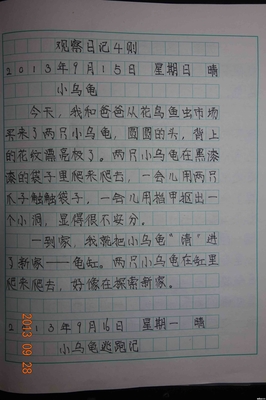 观察日记4则
2013年9月15日 星期日 晴
小乌龟
今天，我和爸爸从花鸟鱼虫市场
买来了两只小乌龟，圆圆的头，背上
的花纹漂亮极了。两只小乌龟在黑漆
漆的袋子里爬来爬去，一会儿用两只
爪子触触袋子，一会儿用指甲抠出一
个小洞，显得很不安分。
一到家，我就把小乌龟“请”进
了新家——龟缸。两只小乌龟在缸里
爬来爬去，好像在探索新家。
2013年9月16日 星期一 晴
小乌龟逃跑记
2013 09 28